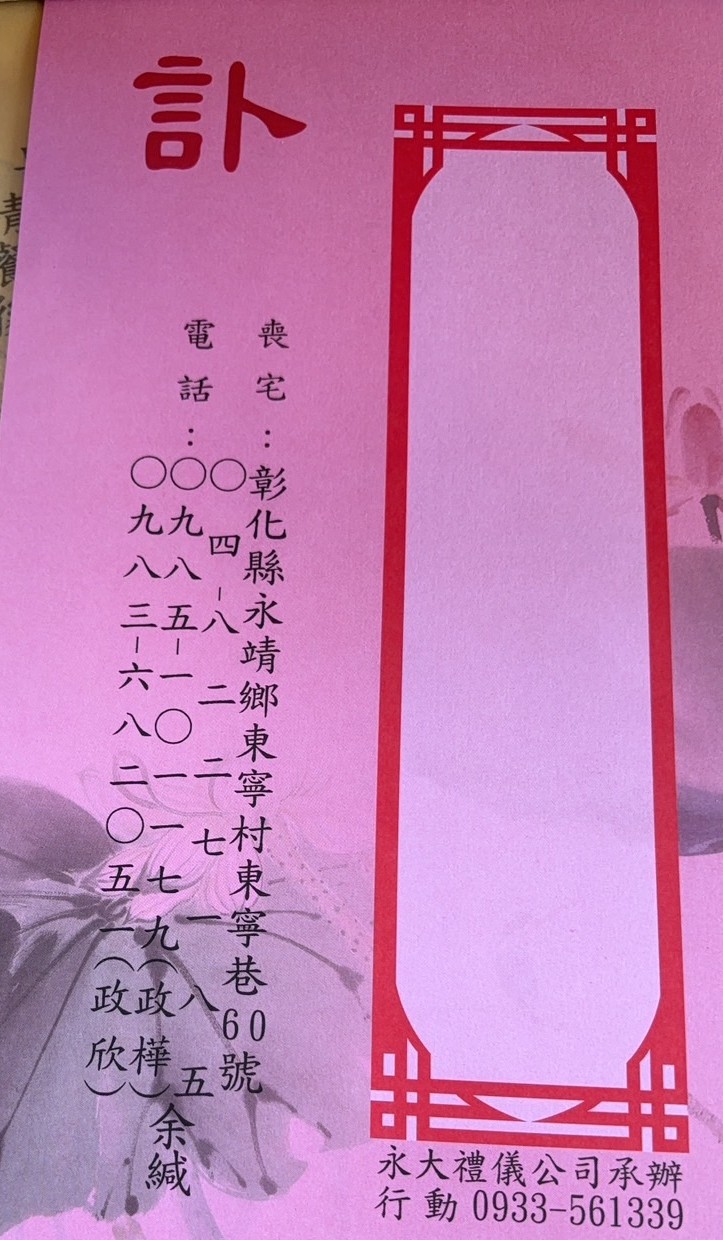 訃
喪宅：彰化縣永靖鄉東寧村東寧巷60號
電話：〇四-八二二七一八五
〇九八五-一〇一一七九(政樺)
〇九八三-六八二〇五一(政欣)
余緘
永大禮儀公司承辦
行動 0933-561339